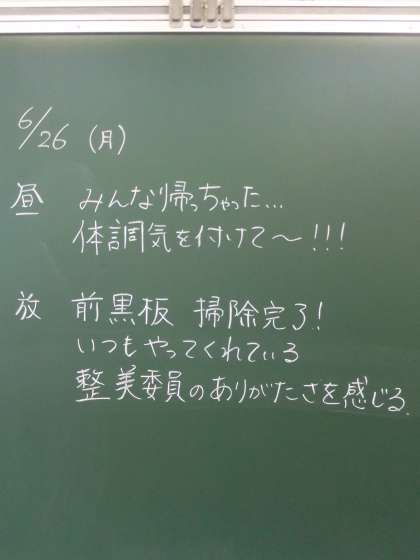 6/26 (月)
昼 みんな帰っちゃった...
体調気を付けて〜!!!
放 前黒板 掃除完了!
いつもやってくれている
整美委員のありがたさを感じる.